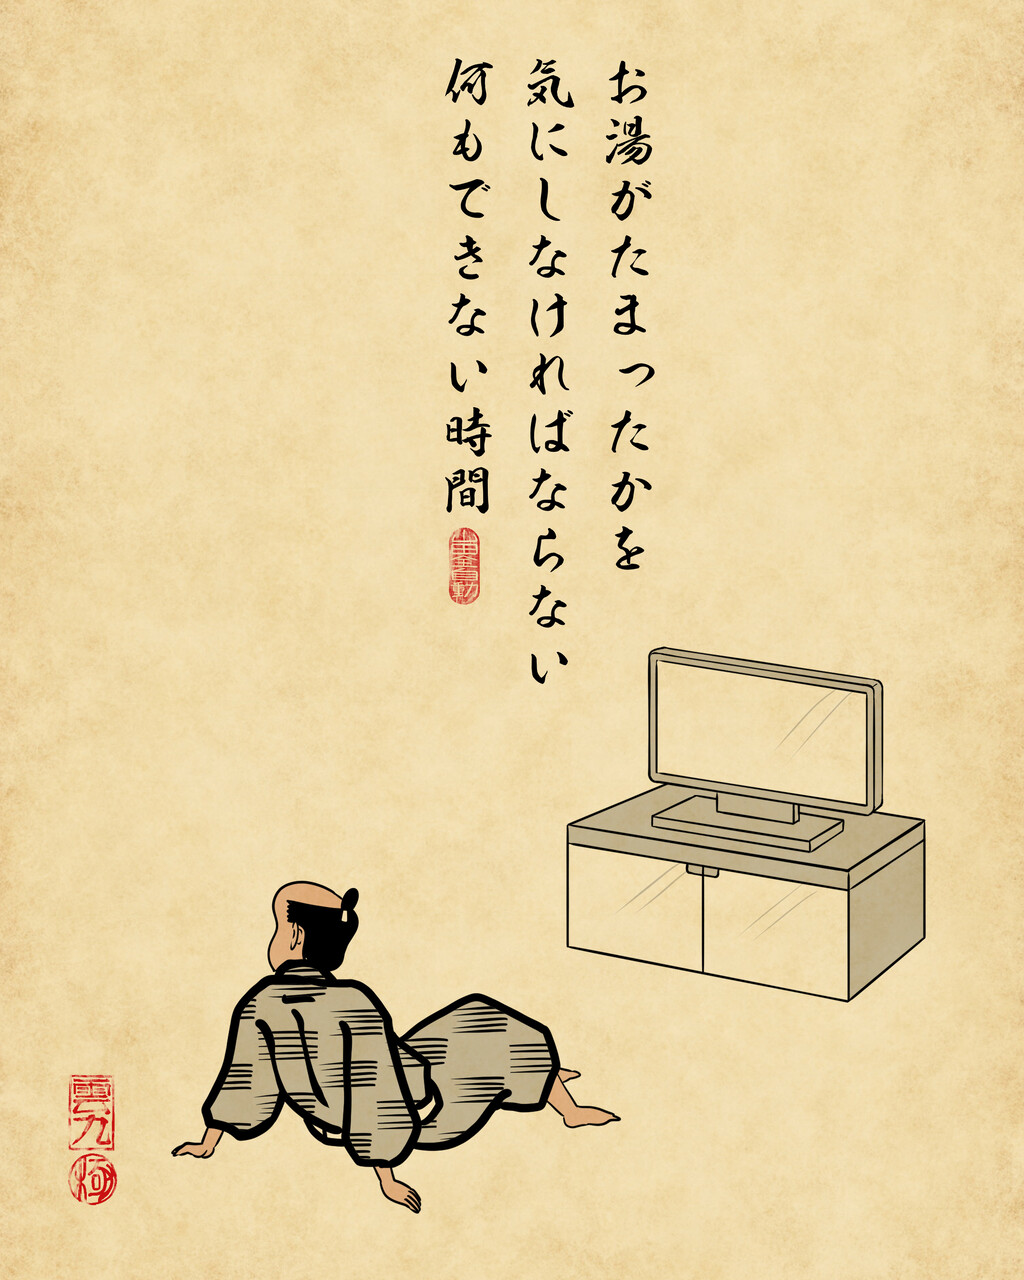 お湯がたまったかを
気にしなければならない
何もできない時間